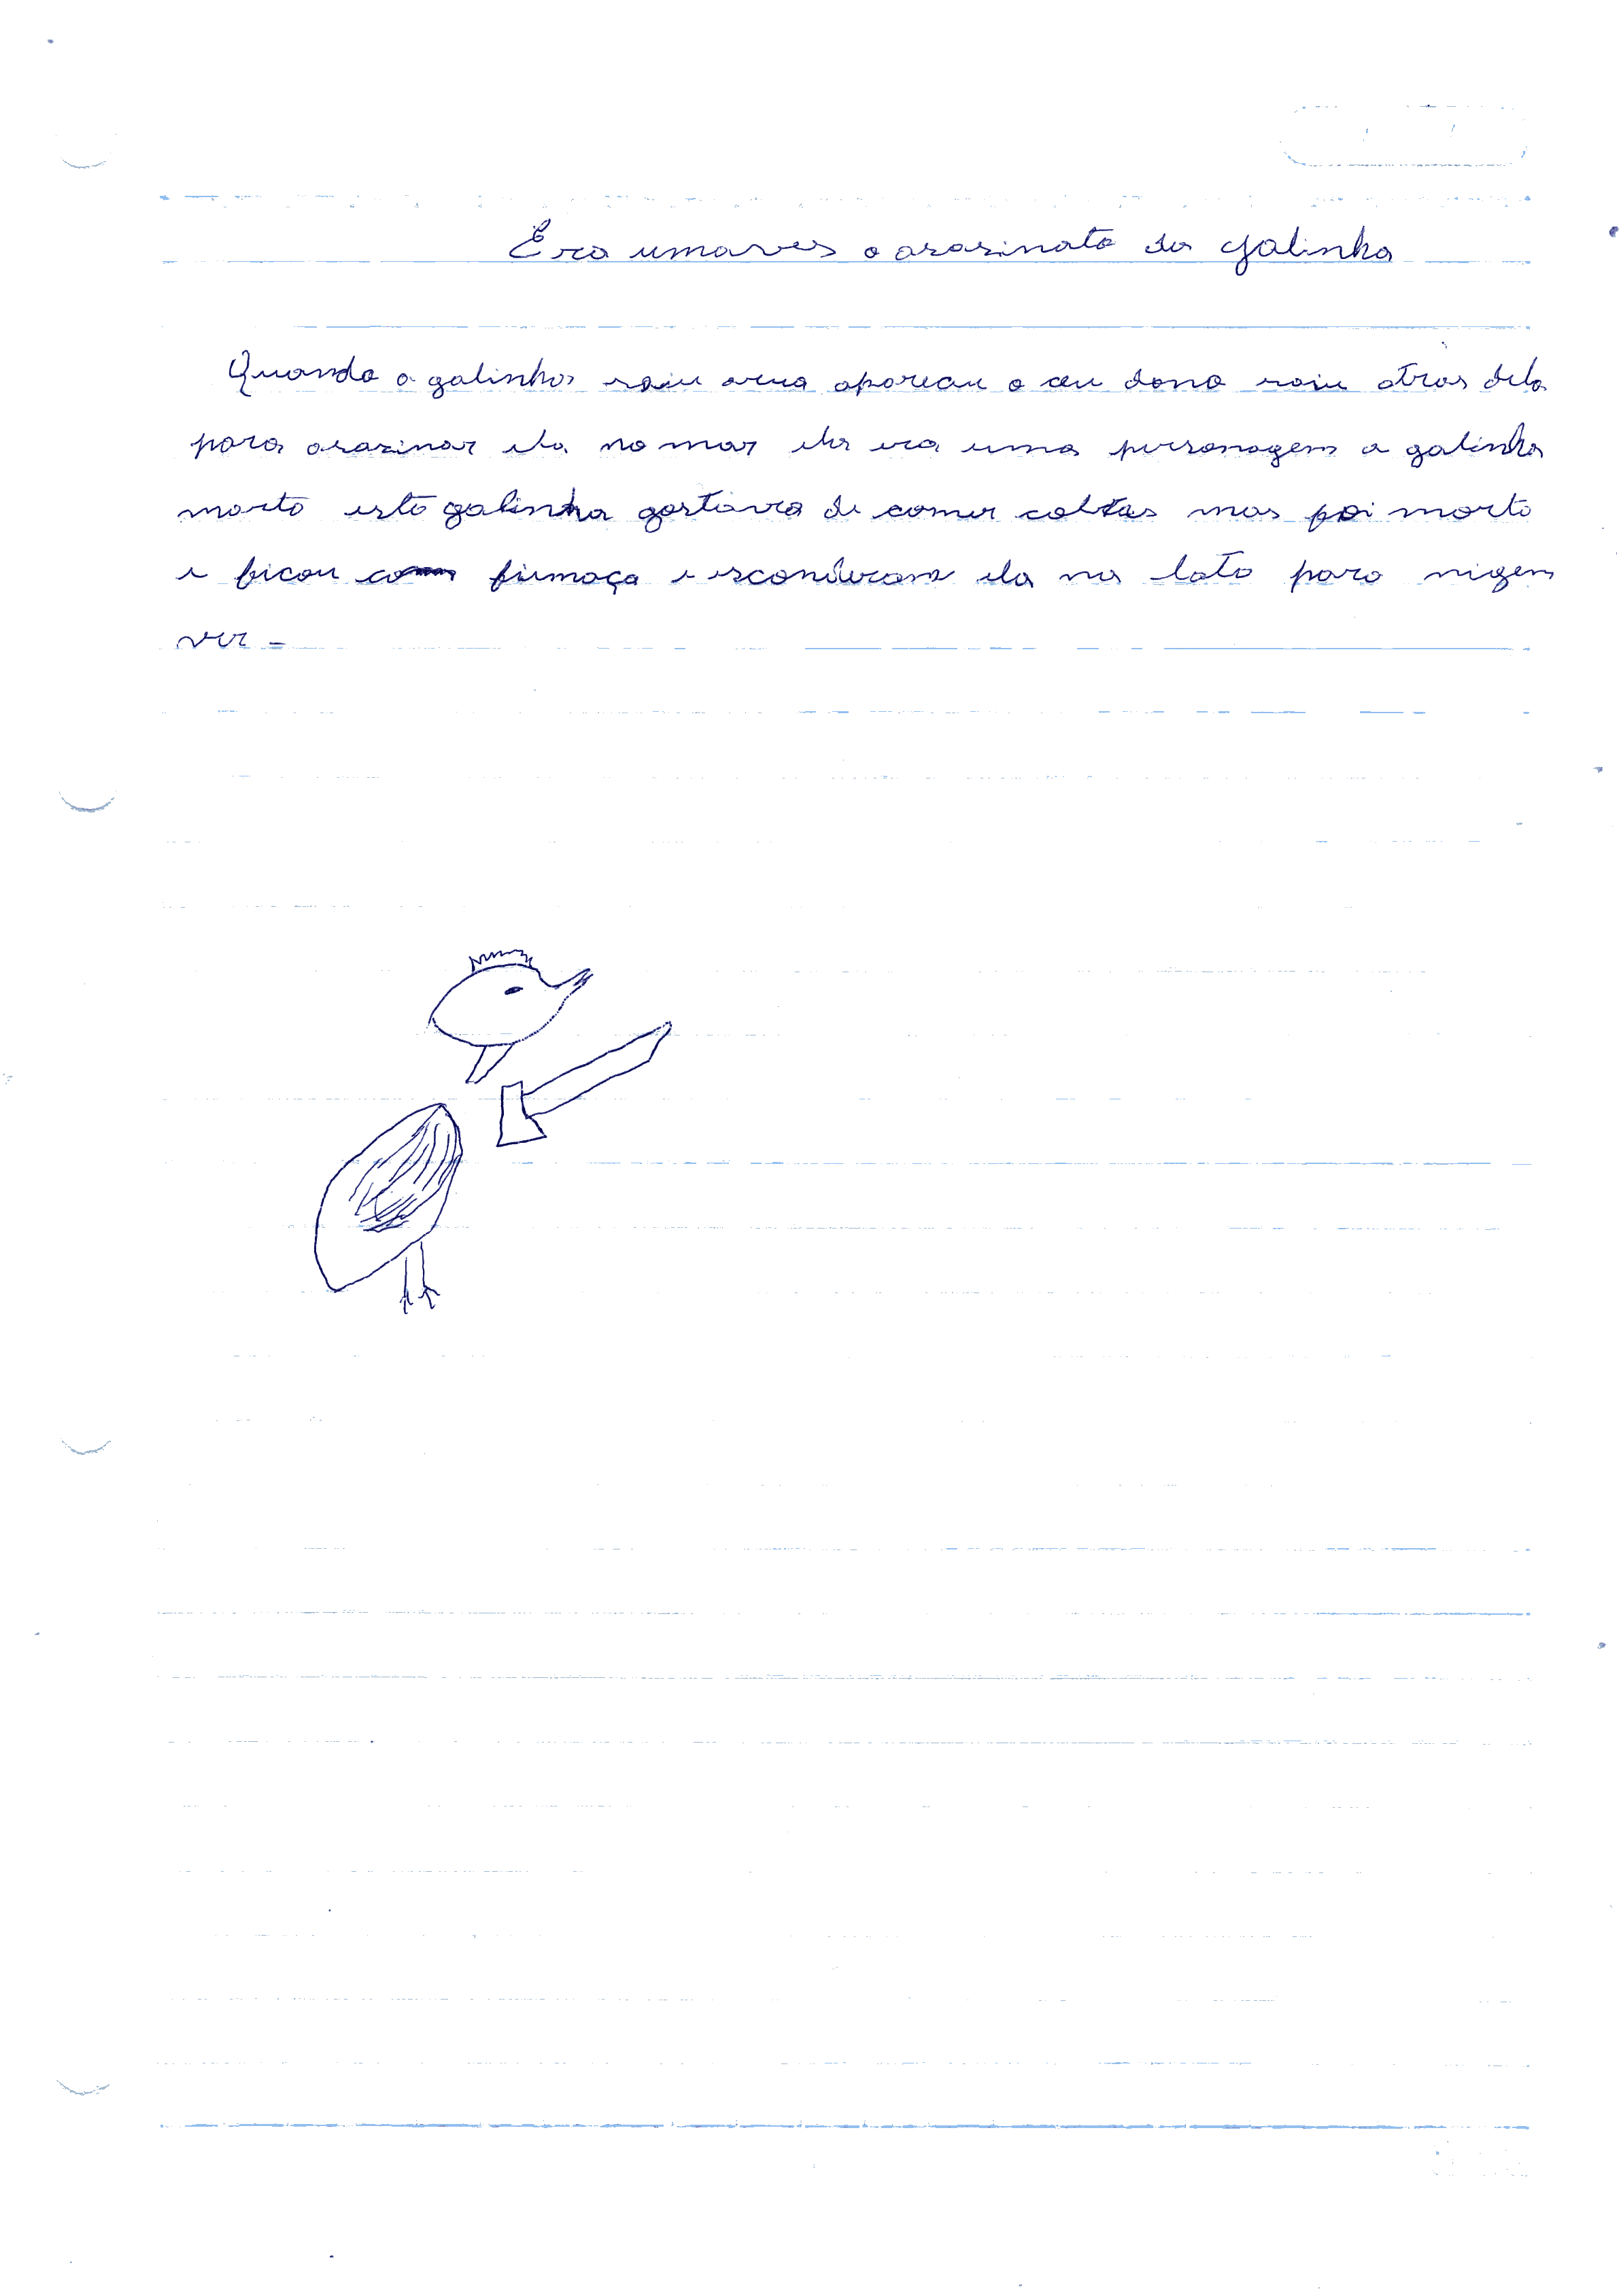 Era umaves o asasinato da galinha
Quando a galinha saiu arua apareceu o ceu dono saiu atras dela
para asasinar ela no mar ela era uma personagem a galinha
morta esta galinha gostava de comer mas foi morta
e ficou com fumaça e esconderam ela na lata para nigem
ver